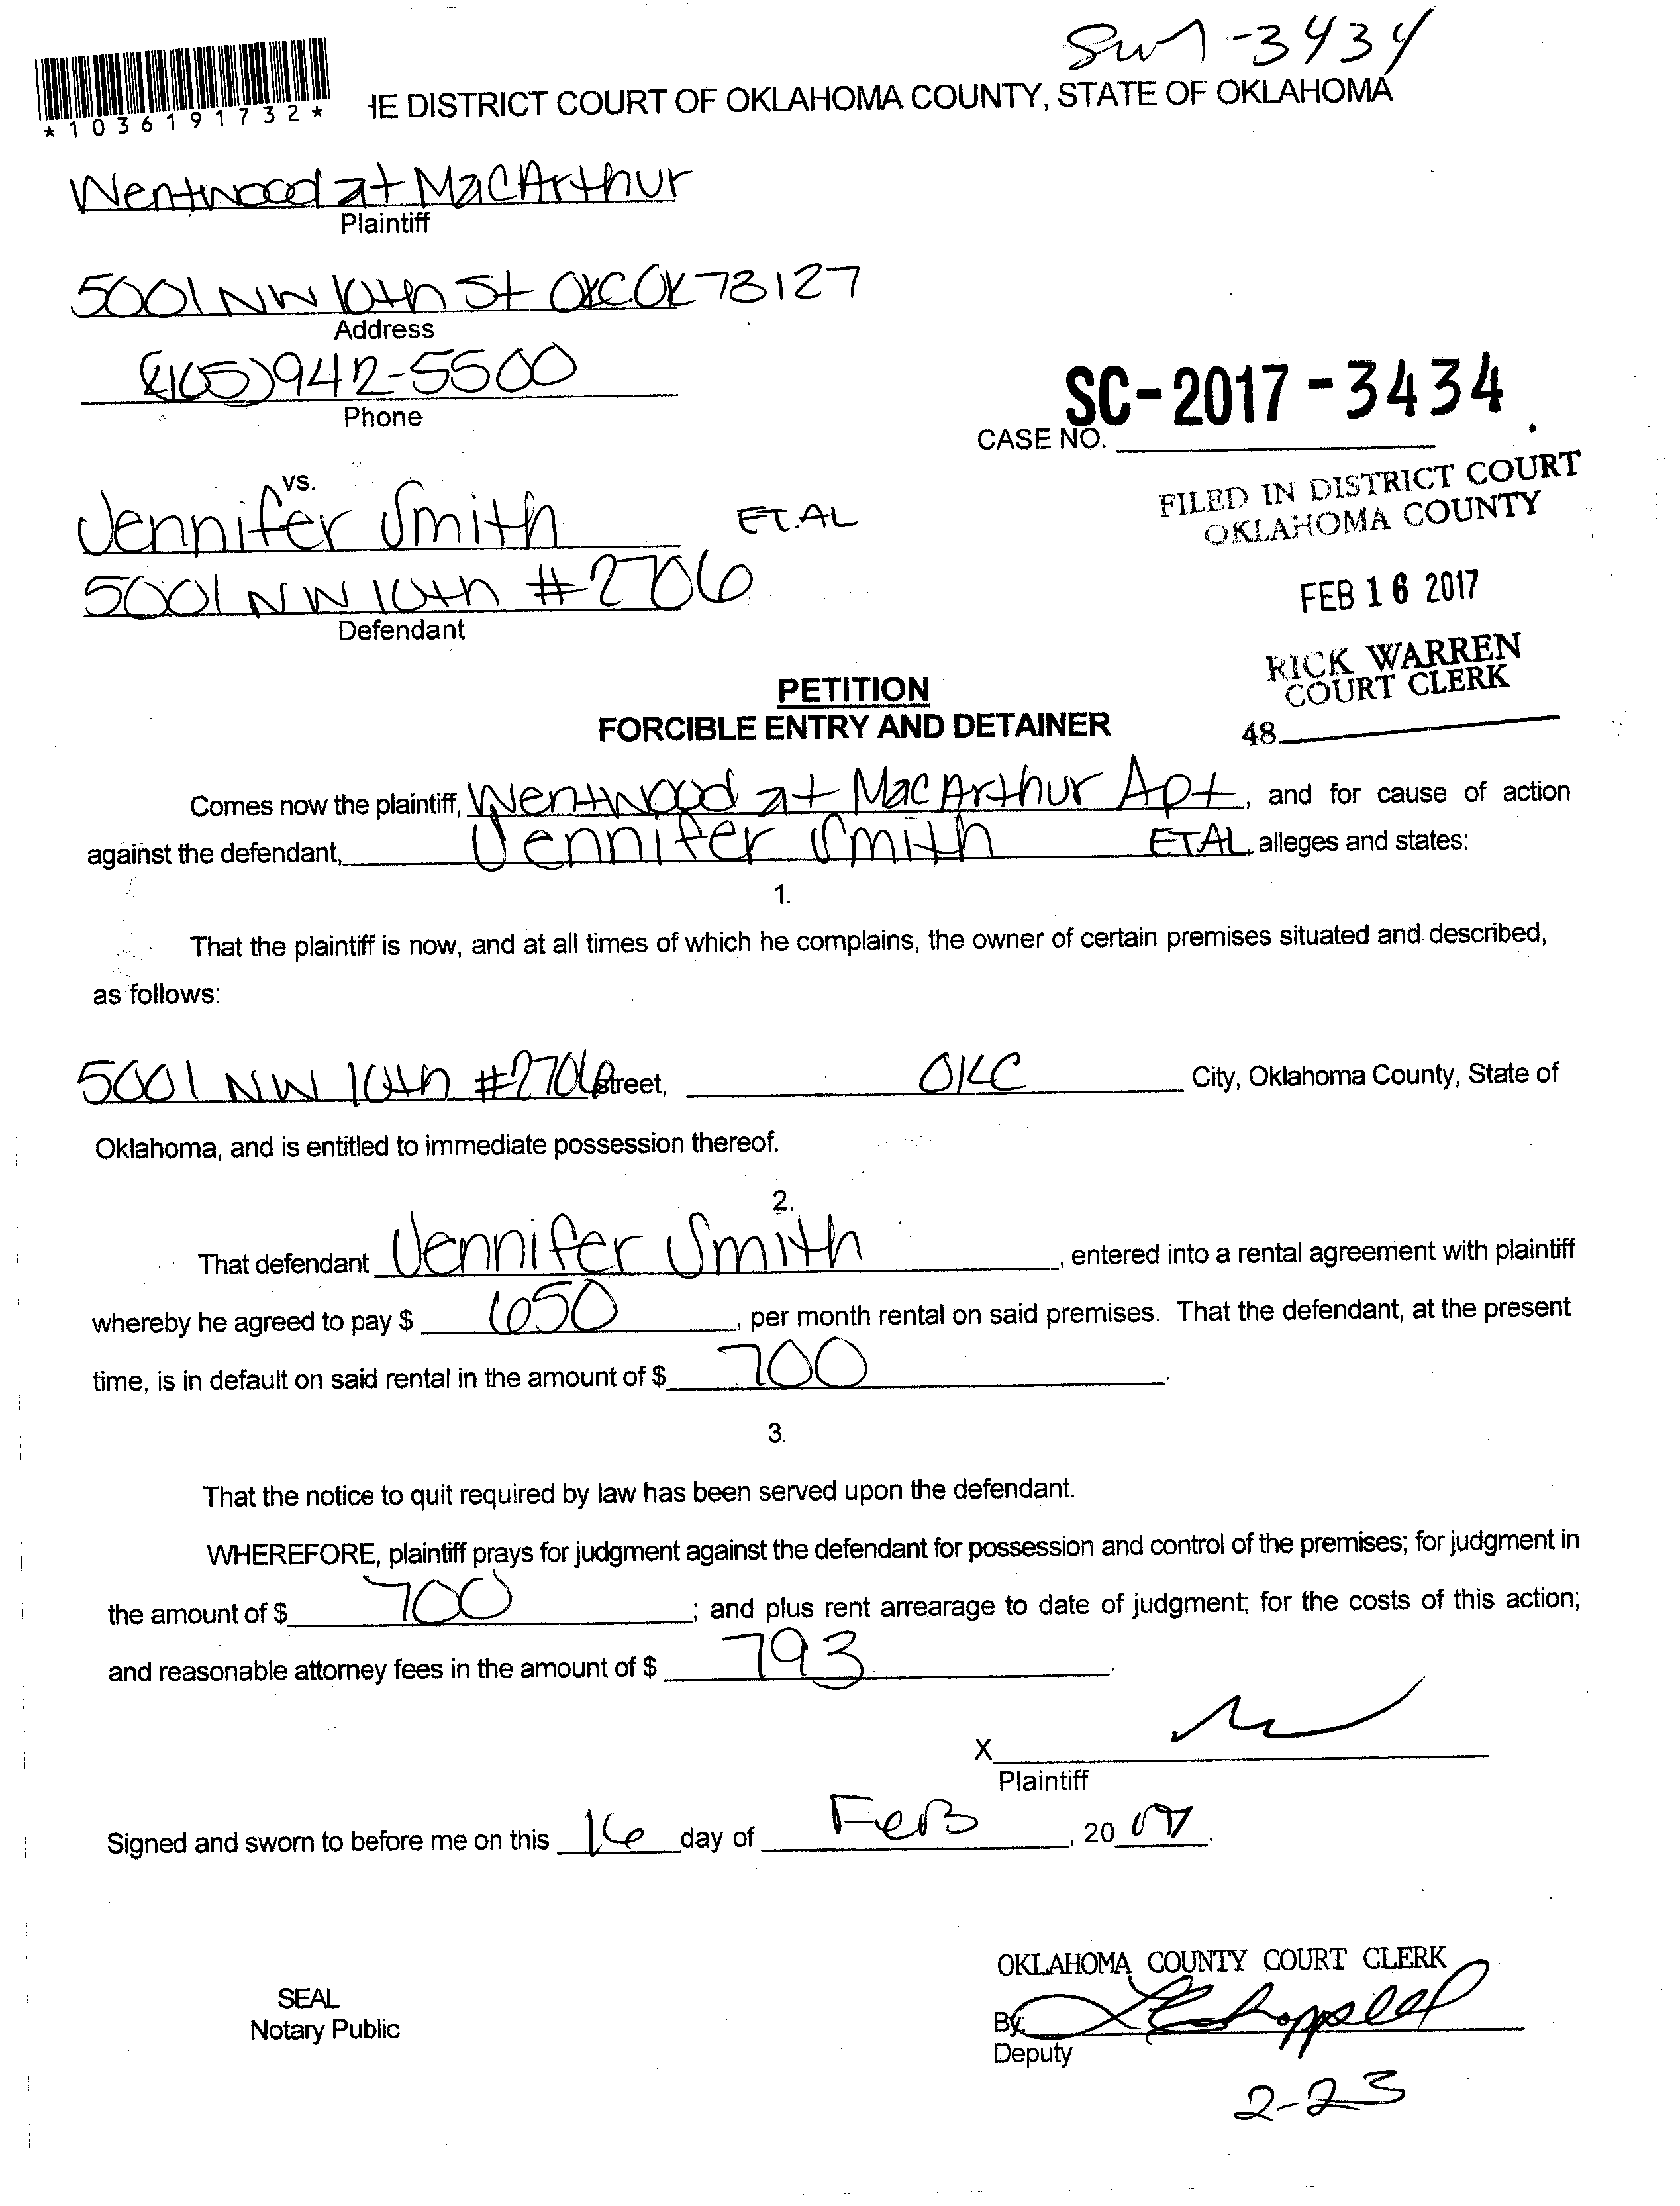 SM17-3434
*1036191732*
HE DISTRICT COURT OF OKLAHOMA COUNTY, STATE OF OKLAHOMA
Wentwood at MacArthur
Plaintiff
5001 NW 10th St OKC.OK 73127
Address
(405)942-5500
Phone
SC-2017-3434
CASE NO.
FILED IN DISTRICT COURT
OKLAHOMA COUNTY
vs.
Jennifer Smith ET.AL
5001 NW 10th #2706
Defendant
FEB 16 2017
RICK WARREN
COURT CLERK
48
PETITION
FORCIBLE ENTRY AND DETAINER
Comes now the plaintiff, Wentwood at MacArthur Apt, and for cause of action
against the defendant, Jennifer Smith ETAL, alleges and states:
1.
That the plaintiff is now, and at all times of which he complains, the owner of certain premises situated and described,
as follows:
5001 NW 10th #2706 Street, OKC City, Oklahoma County, State of
Oklahoma, and is entitled to immediate possession thereof.
2.
That defendant Jennifer Smith, entered into a rental agreement with plaintiff
whereby he agreed to pay $ 650, per month rental on said premises. That the defendant, at the present
time, is in default on said rental in the amount of $ 700.
3.
That the notice to quit required by law has been served upon the defendant.
WHEREFORE, plaintiff prays for judgment against the defendant for possession and control of the premises; for judgment in
the amount of $ 700; and plus rent arrearage to date of judgment; for the costs of this action;
and reasonable attorney fees in the amount of $ 793.
X
Plaintiff
Signed and sworn to before me on this 16 day of Feb, 2017.
OKLAHOMA COUNTY COURT CLERK
SEAL
Notary Public
By:
Deputy
2-23